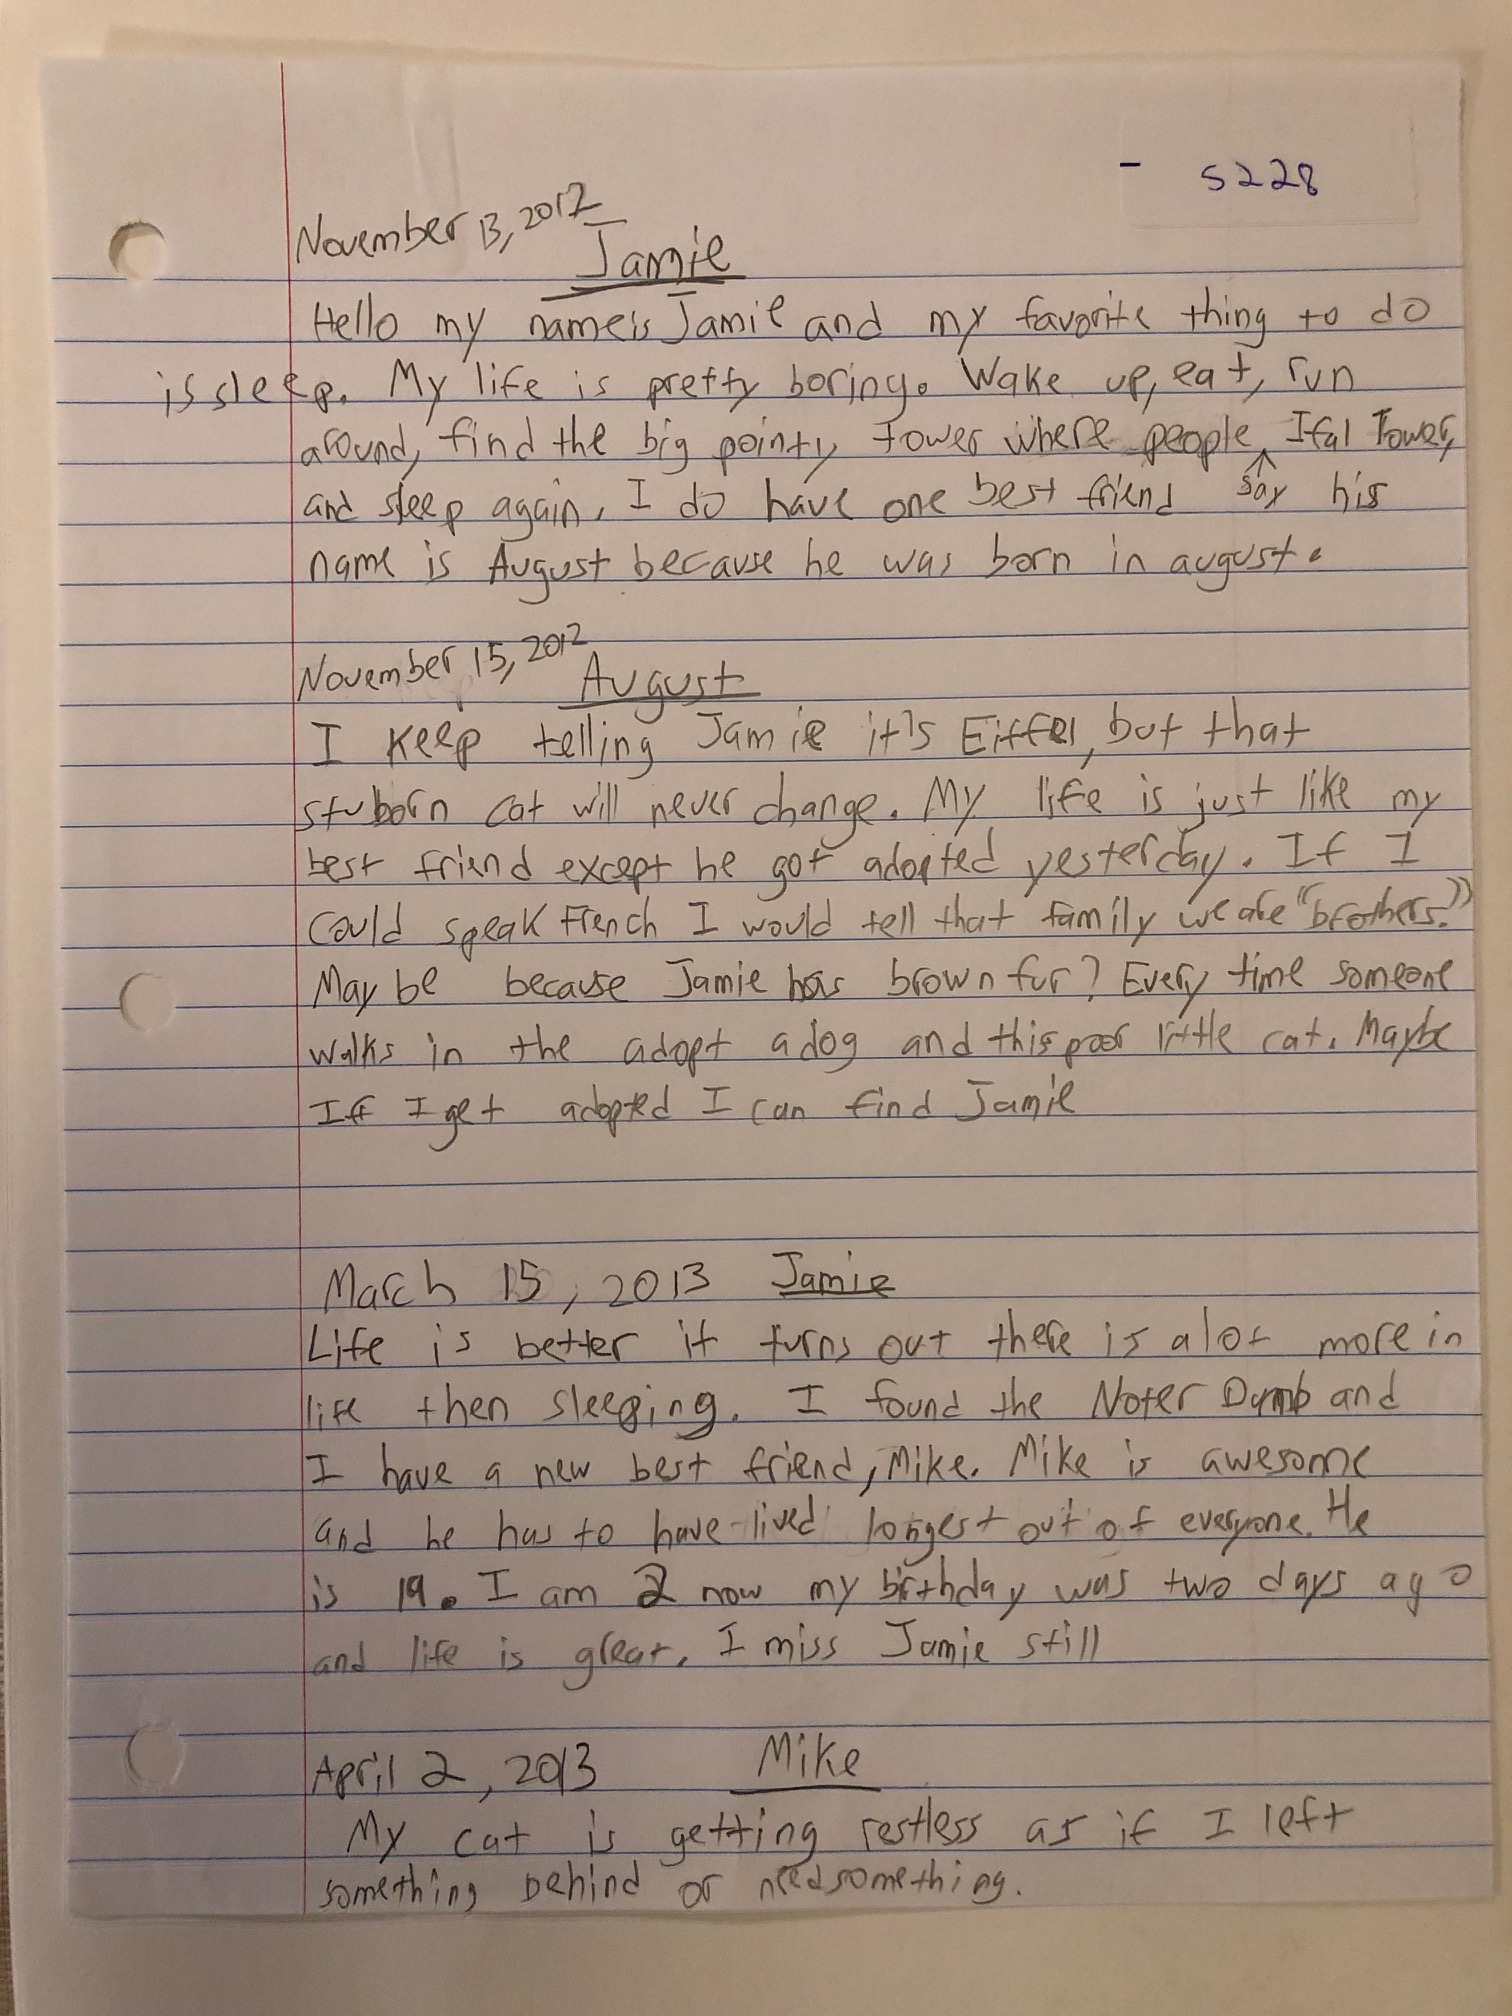 - 5228
November 13, 2012
Jamie
Hello my name is Jamie and my favorite thing to do
is sleep. My life is pretty boring. Wake up, eat, run
around, find the big pointy tower where people say Ifal Tower,
and sleep again. I do have one best friend his
name is August because he was born in august.
November 15, 2012
August
I keep telling Jamie it's Eiffel, but that
stuborn cat will never change. My life is just like my
best friend except he got adopted yesterday. If I
could speak French I would tell that family we are "brothers."
Maybe because Jamie has brown fur? Every time someone
walks in the adopt a dog and this poor little cat. Maybe
If I get adopted I can find Jamie
March 15, 2013 Jamie
Life is better it turns out there is alot more in
life then sleeping. I found the Noter Dumb and
I have a new best friend, Mike. Mike is awesome
and he has to have lived longest out of everyone. He
is 19. I am 2 now my birthday was two days ago
and life is great. I miss Jamie still
April 2, 2013 Mike
My cat is getting restless as if I left
something behind or need something.